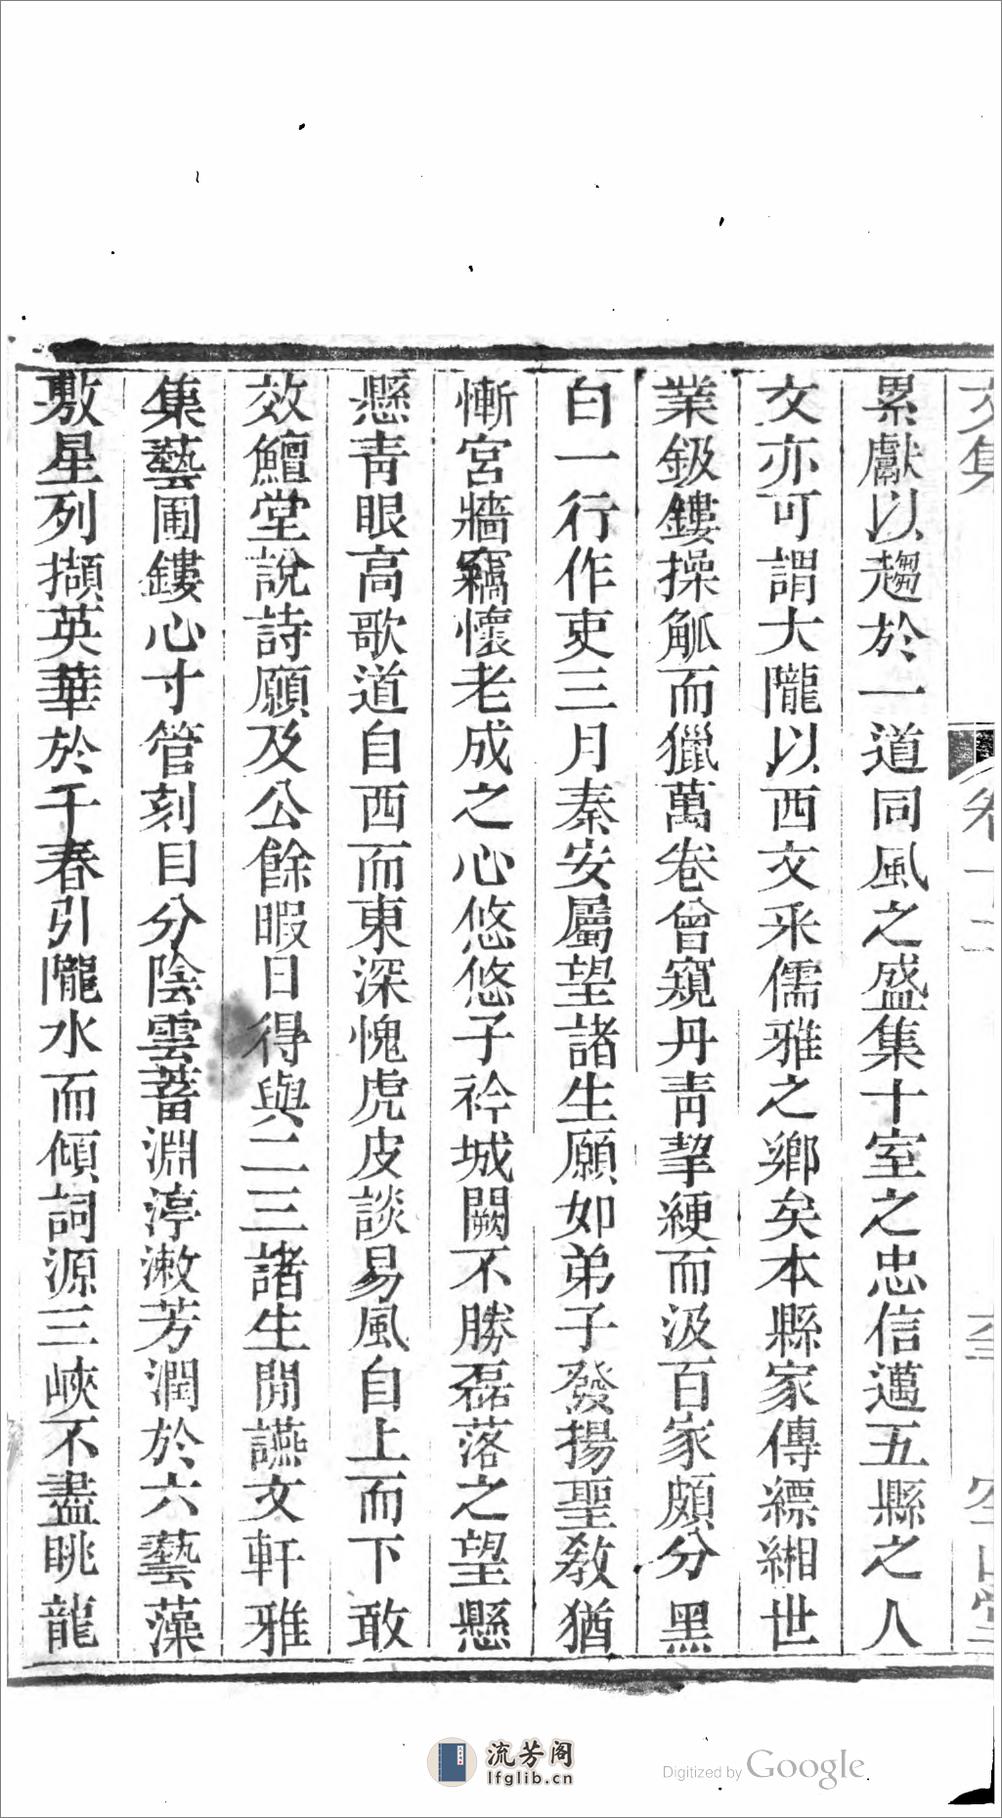 文集
累獻以趨於一道同風之盛集十室之忠信邁五縣之人
文亦可謂大隴以西文采儒雅之鄉矣本縣家傳縹緗世
業鈒鏤操觚而獵萬卷曾窺丹青挈綆而汲百家頗分黑
白一行作吏三月秦安屬望諸生願如弟子發揚聖教猶
慚宮牆竊懷老成之心悠悠子衿城闕不勝磊落之望懸
懸青眼高歌道自西而東深愧虎皮談易風自上而下敢
效鱣堂說詩願及公餘暇日得與二三諸生開讌文軒雅
集藝圃鏤心寸管刻目分陰雲蓄淵渟漱芳潤於六藝藻
敷星列擷英華於千春引隴水而傾詞源三峽不盡眺龍
流芳阁
lfglib.cn
Digitized by Google